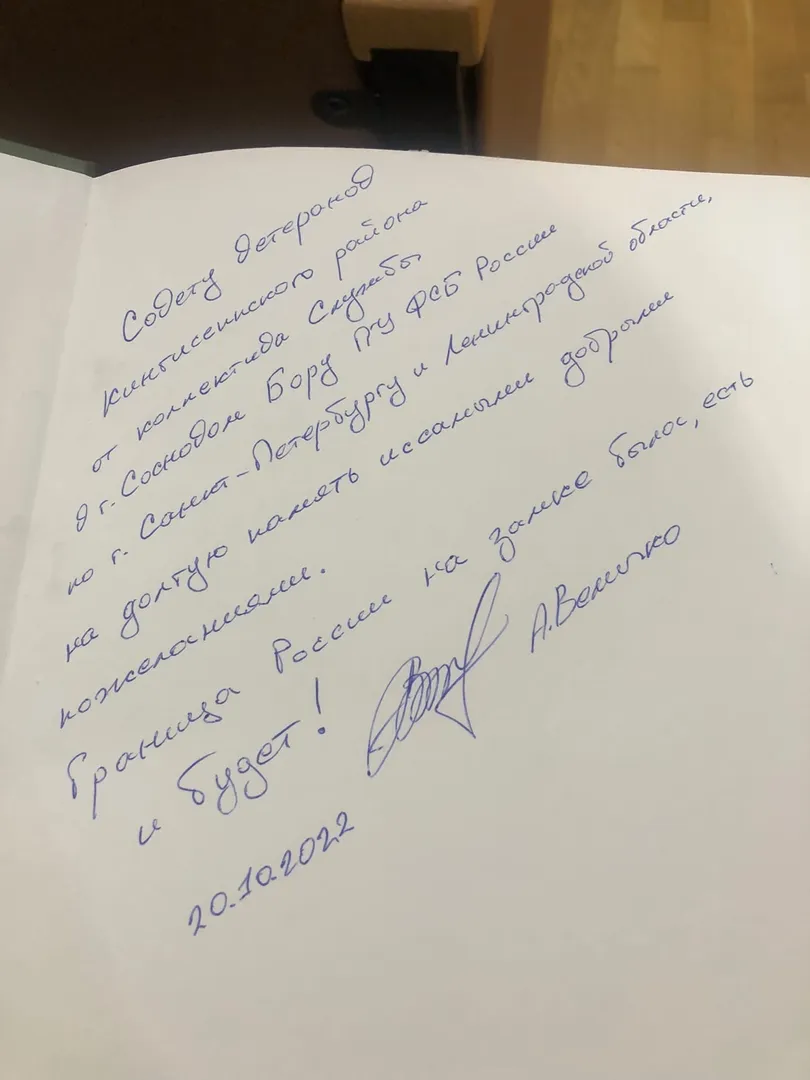 Совету ветеранов
Кингисеппского района
от коллектива Службы
в г. Сосновом Бору ПУ ФСБ России
по г. Санкт-Петербургу и Ленинградской области,
на долгую память и с самыми добрыми
пожеланиями.
Граница России на замке была, есть
и будет!
А. Величко
20.10.2022